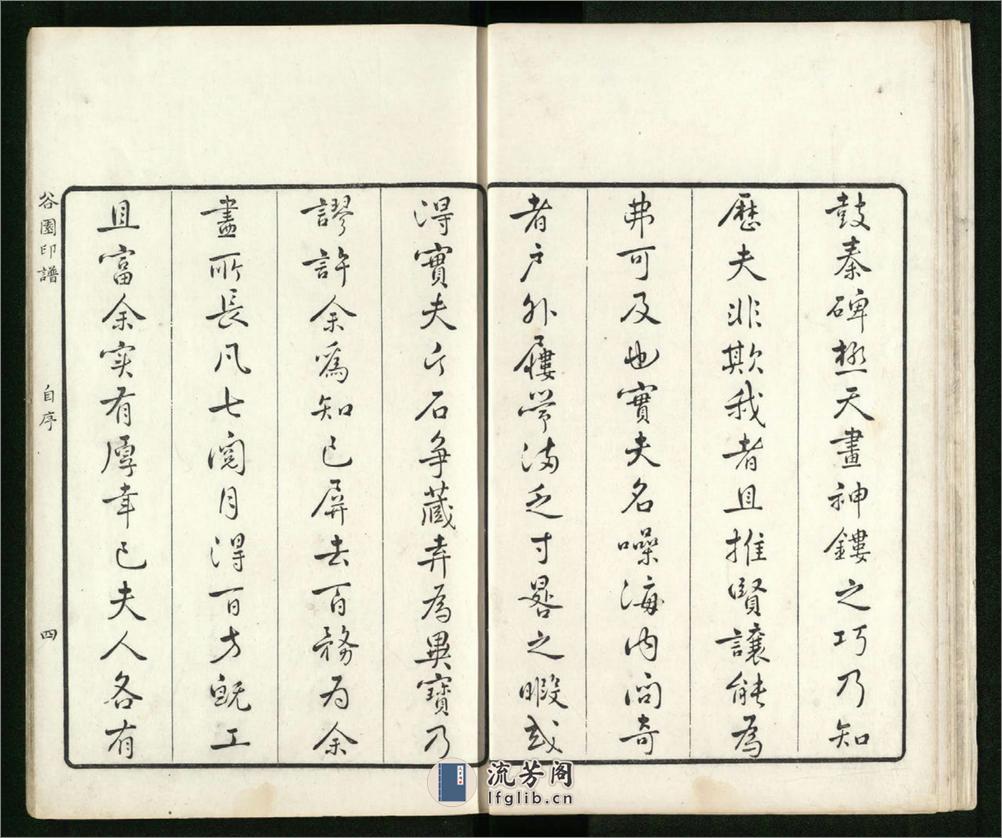 鼓秦碑極天畫神鏤之巧乃知
歷夫非欺我者且推賢讓能為
弗可及也實夫名噪海內問奇
者戶外屨常滿乏寸晷之暇或
得實夫片石爭藏弆為異寶乃
謬許余為知己屏去百務為余
盡所長凡七閱月得百方既工
且富余实有厚幸已夫人各有
谷園印譜
自序
四
流芳阁
lfglib.cn